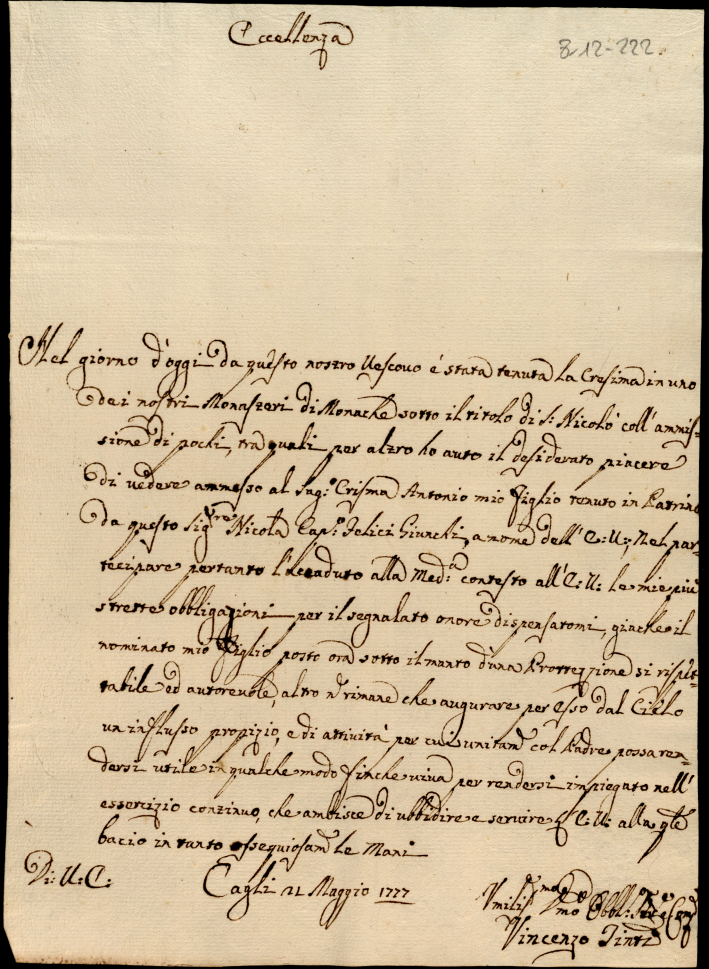 Eccellenza
8-12-222.
Nel giorno d'oggi da questo nostro Vescovo é stata tenuta la Cresima in uno
dei nostri Monasteri di Monache sotto il titolo di S: Nicolò coll'ammis-
sione di pochi, tra quali per altro ho auto il desiderato piacere
di vedere ammesso al Sag:o Crisma Antonio mio Figlio tenuto in Patrino
da questo Sig:re Nicola Cap: Felici Giunchi, a nome dell'E: V:; Nel par-
tecipare pertanto l'accaduto alla Med:a contesto all'E: V: le mie più
strette obbligazioni per il segnalato onore dispensatomi, giache il
nominato mio Figlio posto ora sotto il manto d'una Prottezzione si rispet-
tabile ed autorevole, altro n rimane che augurare per Esso dal Cielo
un influsso propizio, e di attività per cui unitam col Padre possa ren-
dersi utile in qualche modo finche viva per rendersi impiegato nell'
essercizio continuo, che ambisce di ubbidire e servire E: V: alla qle
bacio in tanto ossequiosam le Mani
Di: V: E:
Cagli 21 Maggio 1777
Umilis Dmo Obbl:
Vincenzo Tinti